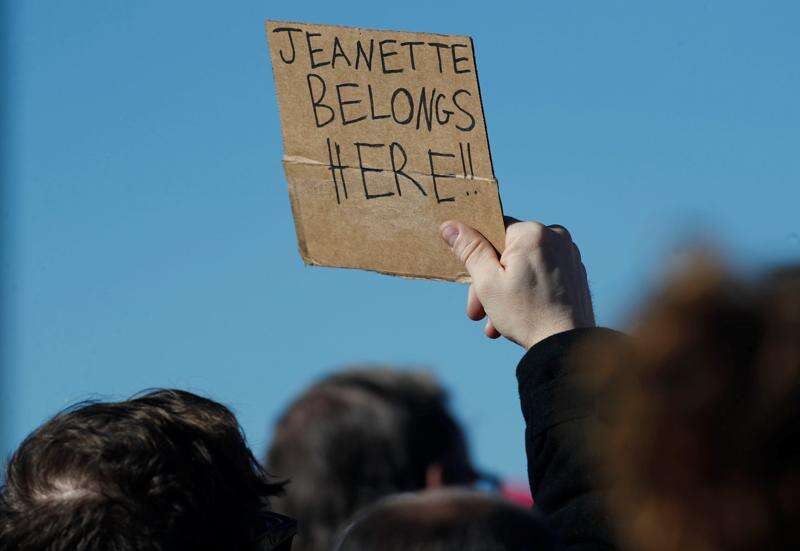 JEANETTE
BELONGS
HERE!!